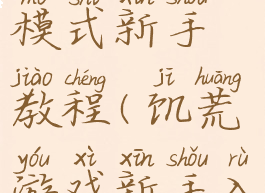 mó shì xīn shǒu
模式新手
jiào chéng jī huāng
教程(饥荒
yóu xì xīn shǒu rù
游戏新手入